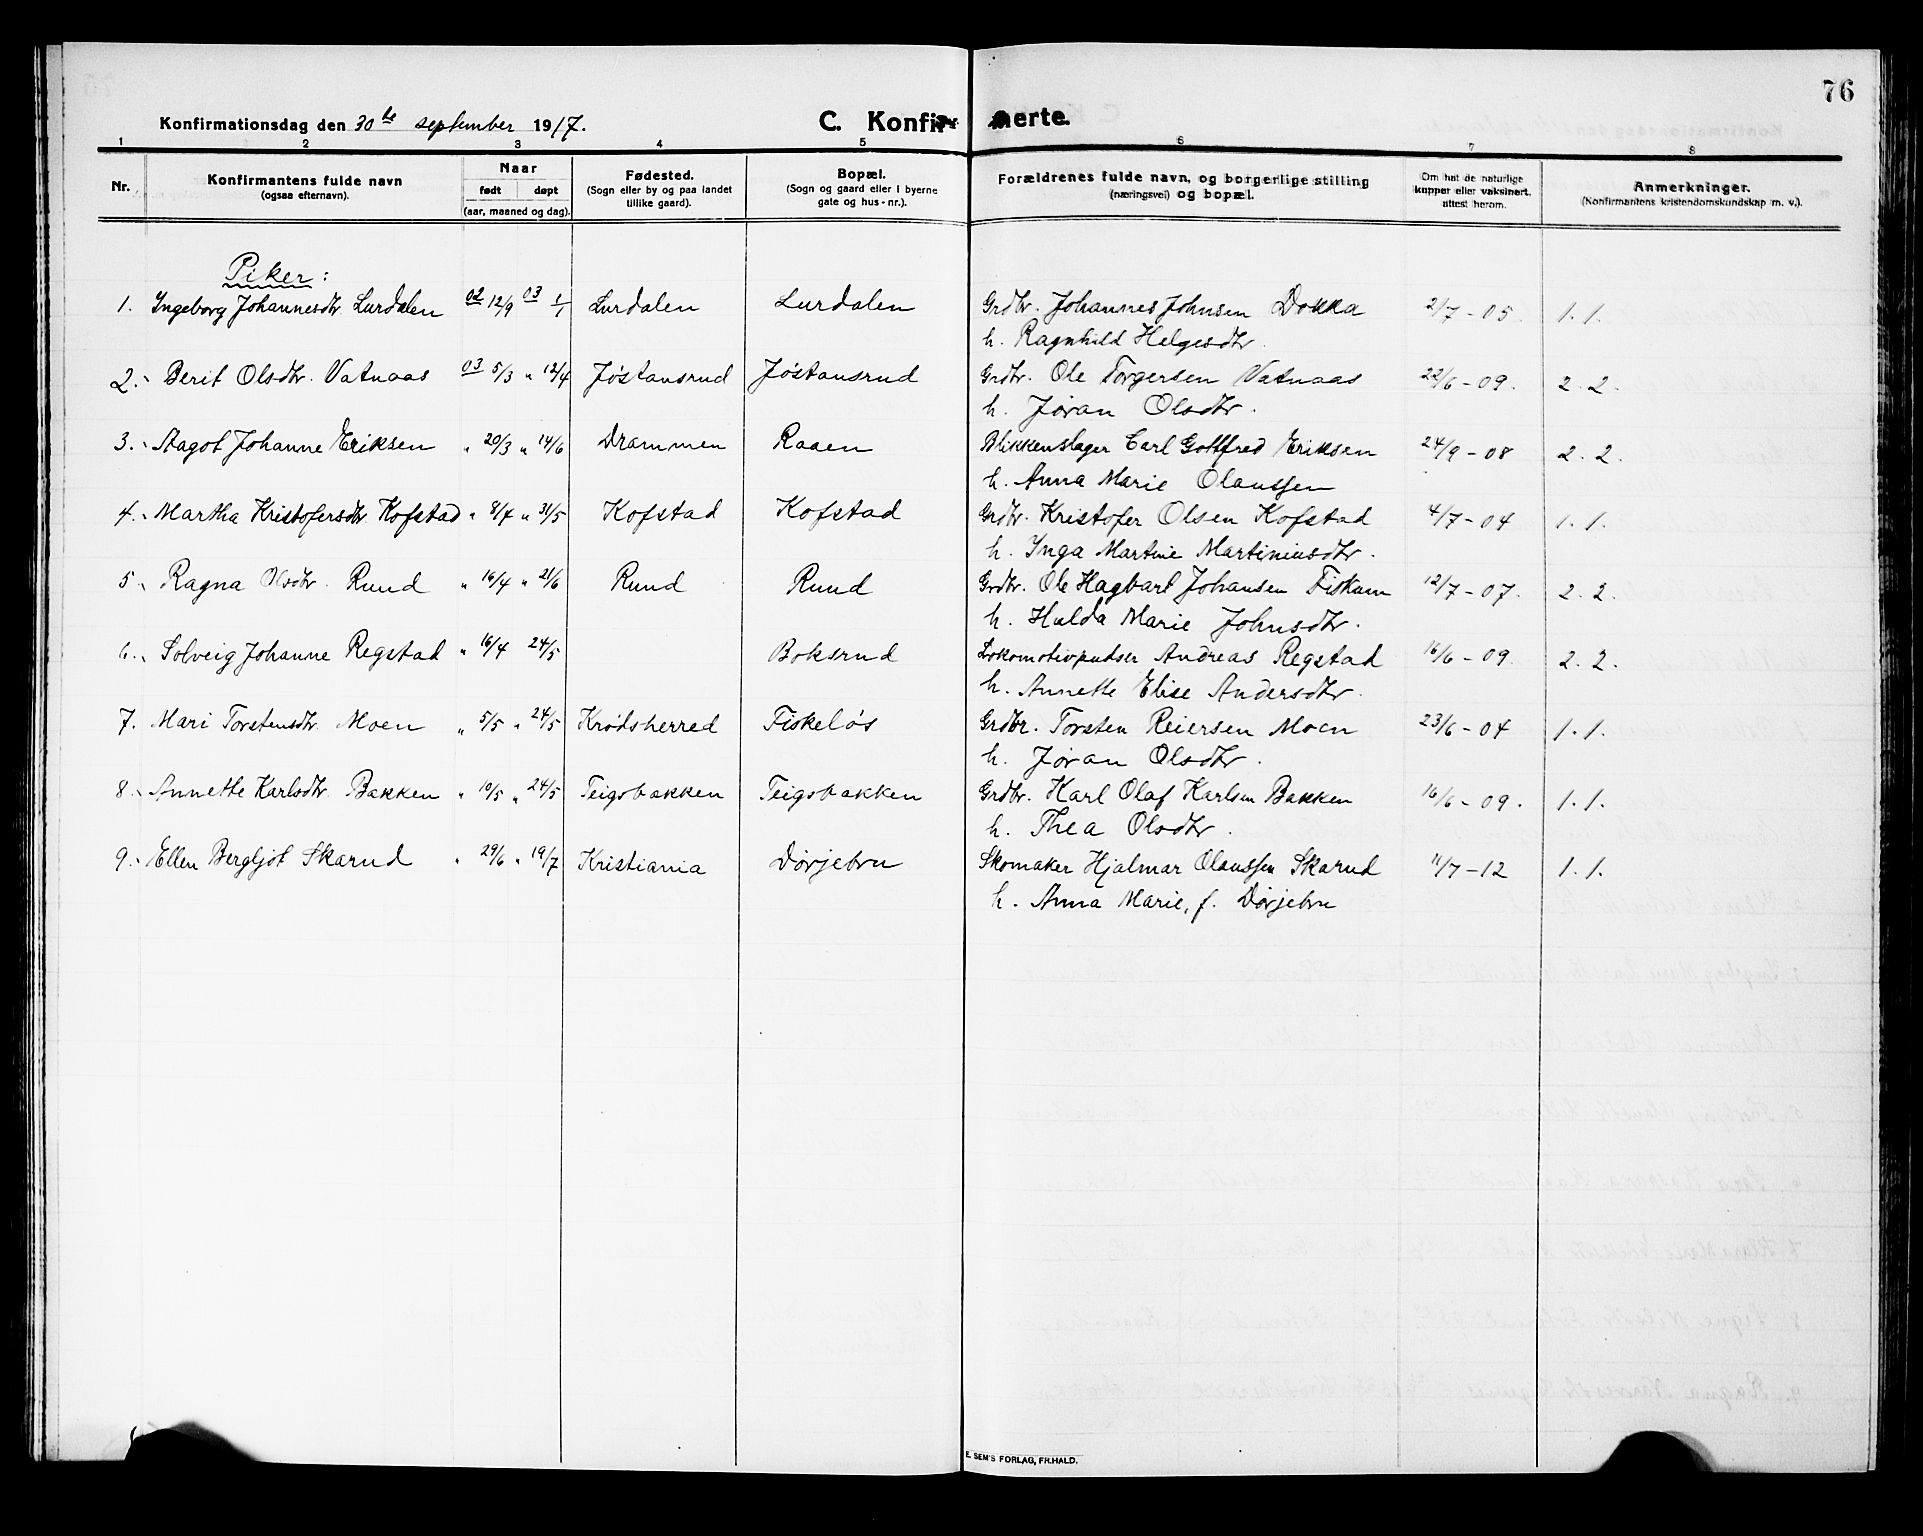 76
Konfirmationsdag den 30te september 1917.
C. Konfirmerte.
1 2 3 4 5 6 7 8
Nr.
Konfirmantens fulde navn
(ogsaa efternavn).
Naar
født døpt
(aar, maaned og dag).
Fødested.
(Sogn eller by og paa landet
tillike gaard).
Bopæl.
(Sogn og gaard eller i byerne
gate og hus-nr.).
Forældrenes fulde navn, og borgerlige stilling
(næringsvei) og bopæl.
Om hat de naturlige
kopper eller vaksinert,
attest herom.
Anmerkninger.
(Konfirmantens kristendomskundskap m. v.).
Piker:
1. Ingeborg Johannesdtr. Lurdalen 02 12/9 03 1/1 Lurdalen Lurdalen Grdbr. Johannes Johnsen Dokka 2/7 - 05. 1. 1.
h. Ragnhild Helgesdtr.
2. Berit Olsdtr. Vatnaas 03 5/3 " 12/4 Jøstansrud Jøstansrud Grdbr. Ole Torgersen Vatnaas 22/6 - 09. 2. 2.
h. Jøran Olsdtr.
3. Aagot Johanne Eriksen " 20/3 " 14/6 Drammen Raaen Blikkenslager Carl Gottfred Eriksen 24/9 - 08 2. 2.
h. Anna Marie Olaussen
4. Martha Kristofersdtr. Kofstad " 8/4 " 31/5 Kofstad Kofstad Grdbr. Kristofer Olsen Kofstad 4/7 - 04 1. 1.
h. Inga Martine Martiniusdtr.
5. Ragna Olsdtr. Rund " 16/4 " 21/6 Rund Rund Grdbr. Ole Hagbart Johansen Fiskum 12/7 - 07. 2. 2.
h. Hulda Marie Johnsdtr.
6. Solveig Johanne Regstad " 16/4 24/5 Boksrud Lokomotivpudser Andreas Regstad 16/6 - 09. 2. 2.
h. Annette Elise Andersdtr.
7. Mari Torstensdtr. Moen " 5/5 " 24/5 Krødsherred Fiskeløs Grdbr. Torsten Reiersen Moen 23/6 - 04 1. 1.
h. Jøran Olsdtr.
8. Annette Karlsdtr. Bakken " 10/5 " 24/5 Teigsbakken Teigsbakken Grdbr. Karl Olaf Karlsen Bakken 16/6 - 09. 1. 1.
h. Thea Olsdtr.
9. Ellen Bergljot Skarud " 29/6 " 19/7 Kristiania Dørjebru Skomaker Hjalmar Olaussen Skarud 11/7 - 12 1. 1.
h. Anna Marie, f. Dørjebru
E. SEM'S FORLAG, FR.HALD.